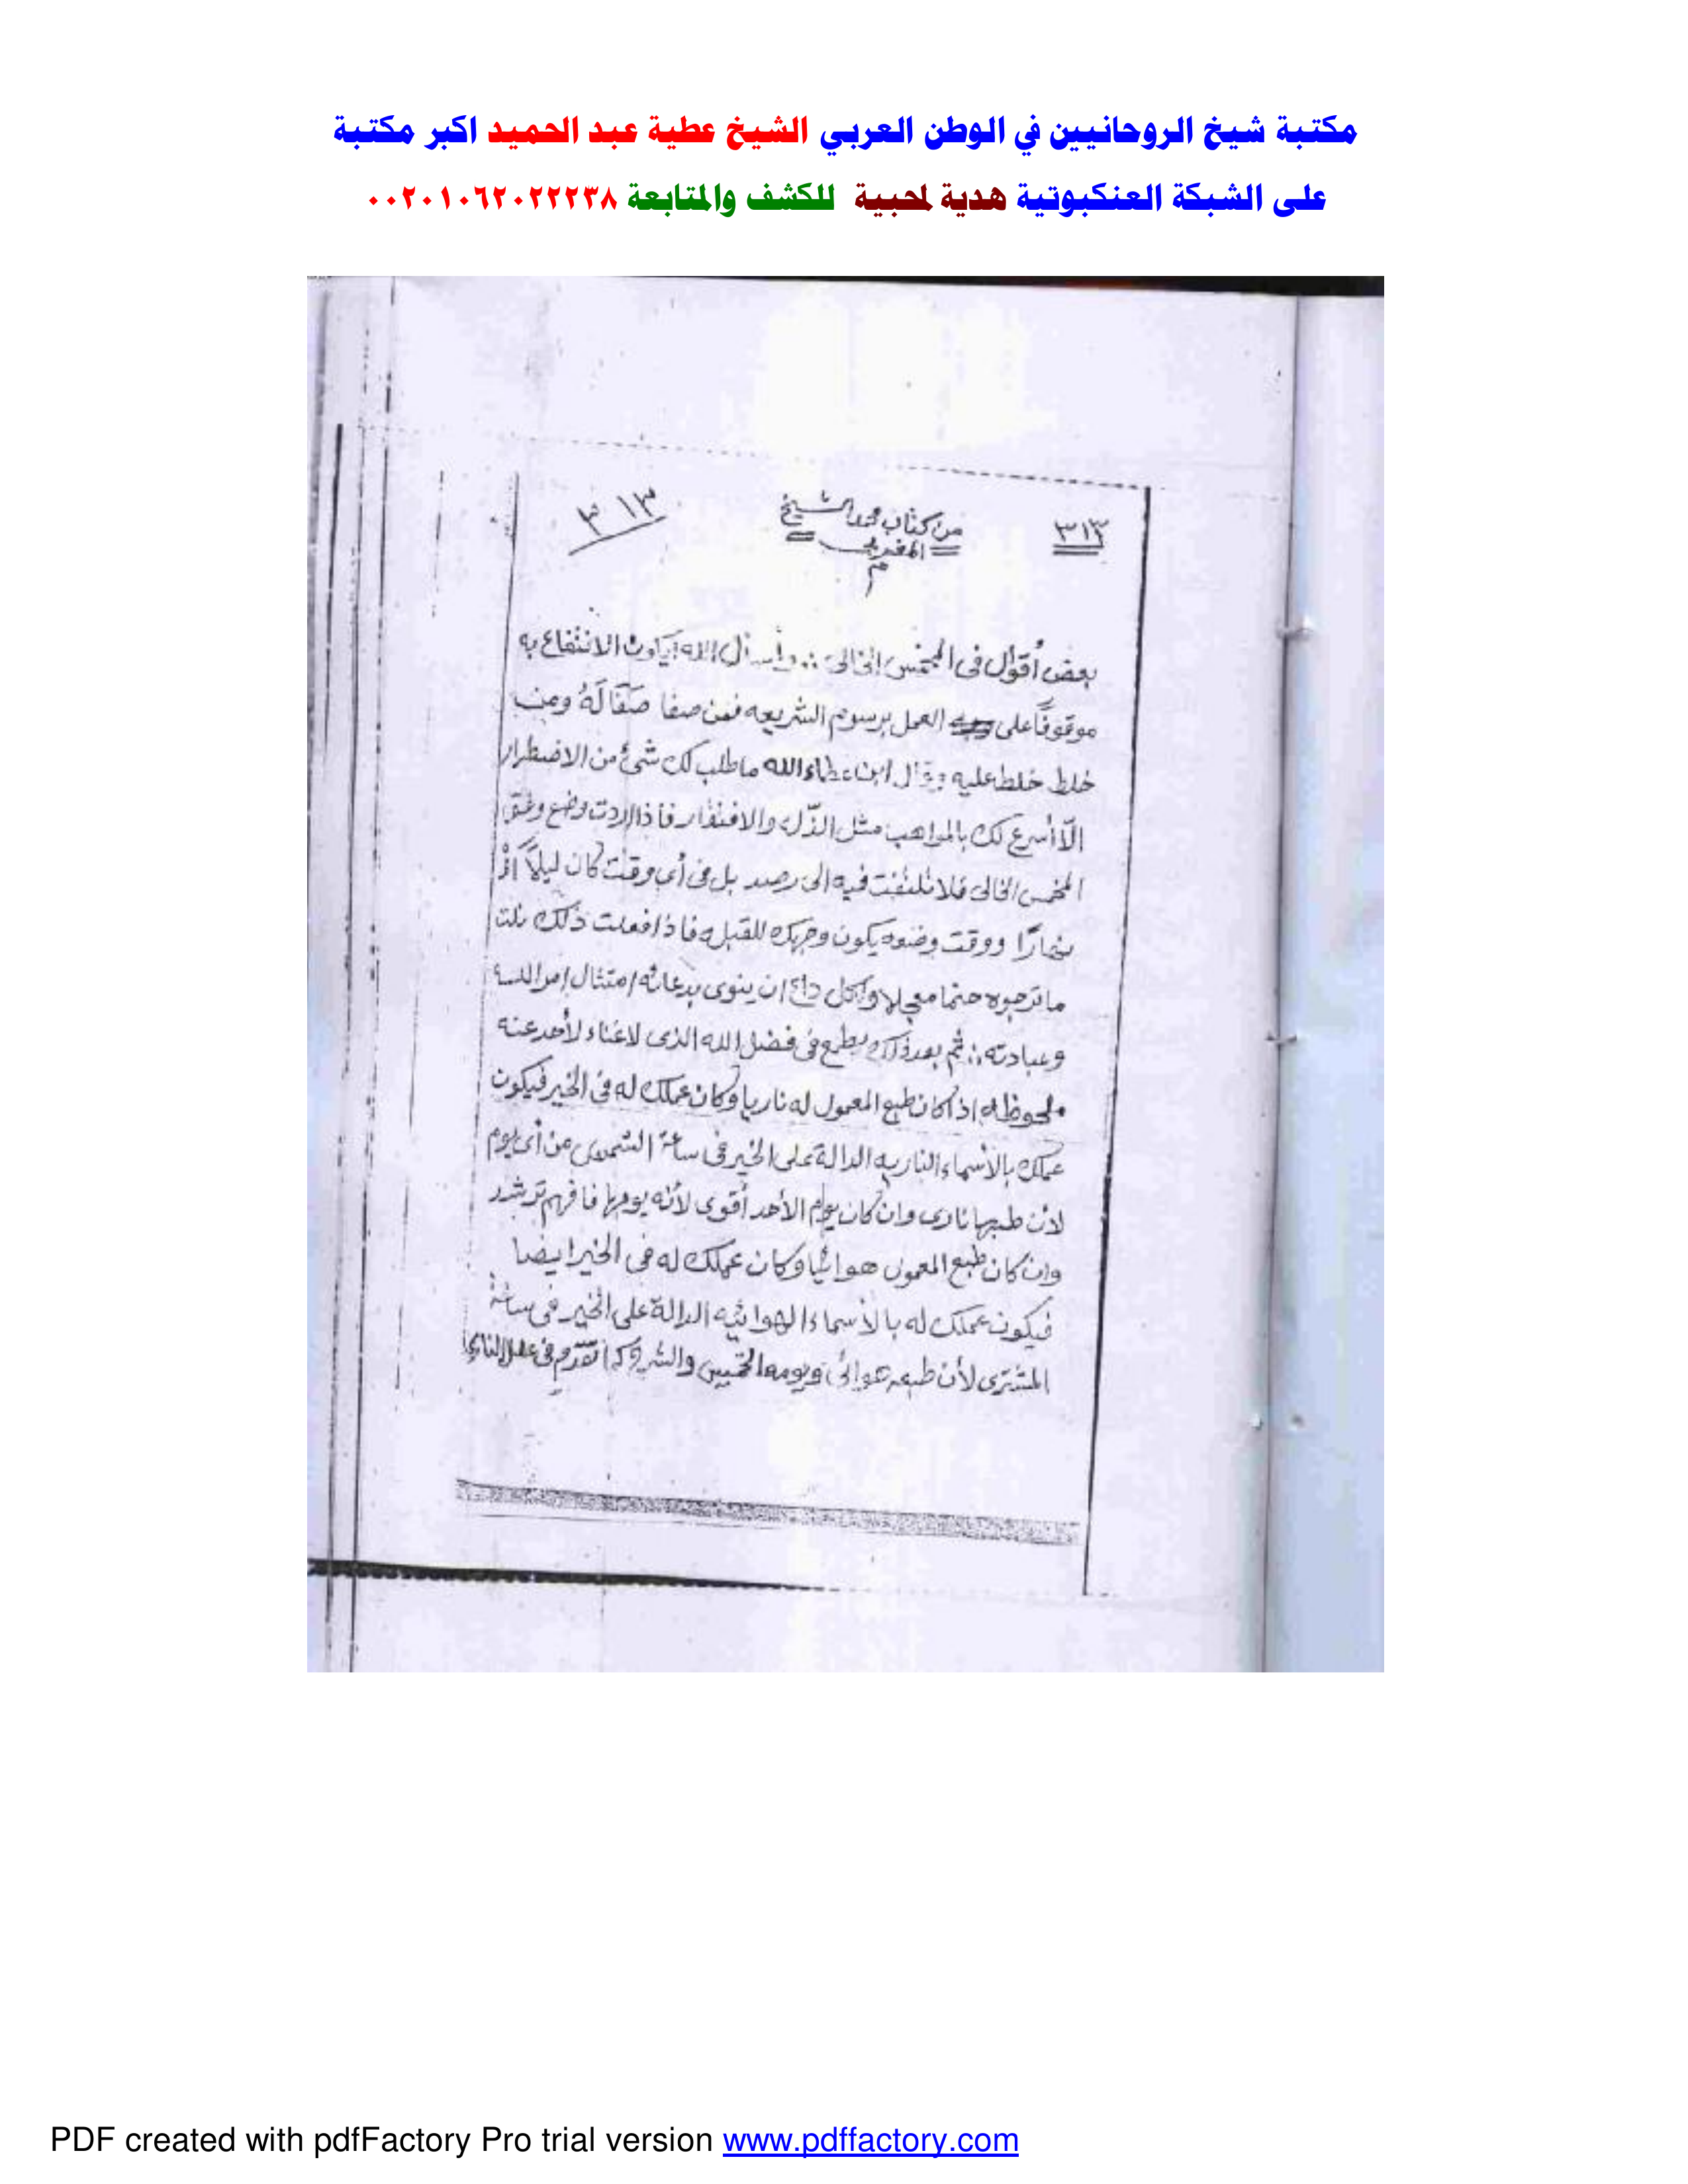 مكتبة شيخ الروحانيين في الوطن العربي الشيخ عطية عبد الحميد اكبر مكتبة
على الشبكة العنكبوتية هدية لمحبية للكشف والمتابعة ٠٠٢٠١٠٦٢٠٢٢٢٣٨
٣١٣ من كتاب محمد الشيخ ٣١٣
المغربى
م
بعض أقوال فى المخمس الخالى :. وأسأل الله أن يكون الانتفاع به
موقوفًا على العمل برسوم الشريعه فمن صفا صَفَا لَهُ ومن
خلط خلط عليه وقال ابن عطاء الله ما طلب لك شئ من الاضطرار
الّا أسرع لك بالمواهب مثل الذّل والافتقار فاذا اردت وضع وفق
المخمس الخالى فلا تلتفت فيه الى رصد بل فى أى وقت كان ليلًا أوْ
نهارًا ووقت وضعه يكون وجهك للقبله فاذا فعلت ذلك نلت
ما ترجوه حتما معجلا ولكل داع ان ينوى بدعائه امتثال امر الله
وعبادته :. ثم بعد ذلك يطمع فى فضل الله الذى لا غناء لأحد عنه
ملحوظه اذا كان طبع المعمول له ناريا وكان عملك له فى الخير فيكون
عملك بالأسماء الناريه الدالة على الخير فى ساعة الشمس من أى يوم
لأن طبعها نارى وان كان يوم الأحد أقوى لأنه يومها فافهم ترشد
وان كان طبع المعمول هوائيا وكان عملك له فى الخير ايضا
فيكون عملك له بالأسماء الهوائيه الدالة على الخير فى ساعة
المشترى لأن طبعه هوائى ويومه الخميس والشر كما تقدم فى عمل النارى
PDF created with pdfFactory Pro trial version www.pdffactory.com